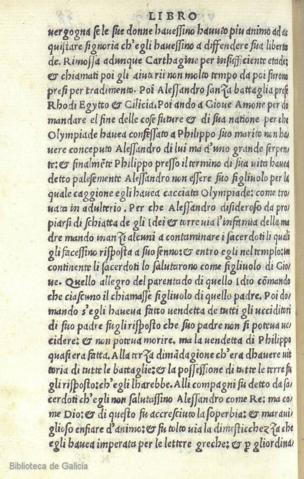 LIBRO
vergogna se le sue donne havessino havuto piu animo ad ac
quistare signoria ch'egli havessino a diffendere sua liberta
de. Rimossa adunque Carthagine per insufficiente etade;
& chiamati poi gli aiutarii non molto tempo da poi furono
presi per tradimento. Poi Alessandro sanza battaglia prese
Rhodi Egytto & Cilicia. Poi ando a Giove Amone per do
mandare el fine delle cose future & di sua natione per che
Olympiade havea confessato a Philippo suo marito non ha
vere conceputo Alessandro di lui ma d'uno grande serpen
te: & finalmēte Philippo presso il termino di sua vita havea
detto palesemente Alessandro non essere suo figliuolo per la
quale caggione egli havea cacciata Olympiade: come tro
vata in adulterio. Per che Alessandro disideroso da pro
piarsi di schiatta de gli Idei & torre via l'infamia della ma
dre mando manzi alcuni a contaminare i sacerdoti li quali
gli facessino risposta a suo senno: & entro egli nel tempio: in
continente li sacerdoti lo salutarono come figliuolo di Gio
ve. Quello allegro del parentado di quello Idio cōmando
che ciascuno il chiamasse figliuolo di quello padre. Poi do
mando s'egli haveva fatto vendetta de tutti gli ucciditori
di suo padre fugli risposto che suo padre non si poteva uc
cidere: & non poteva morire, ma la vendetta di Philippo
quasi era fatta. Alla terza dimādagione ch'era dhavere uit
toria di tutte le battaglie: & la possessione di tutte le terre fu
gli risposto: ch'egli lharebbe. Alli compagni su detto da sa
cerdoti ch'egli non salutassino Alessandro come Re: ma co
me Dio: & di questo su accresciuto la soperbia: & maravi
glioso enfiare d'animo: & su tolto via la dimestichezza che
egli havea imperata per le lettere greche: & p gliordina
Biblioteca de Galicia